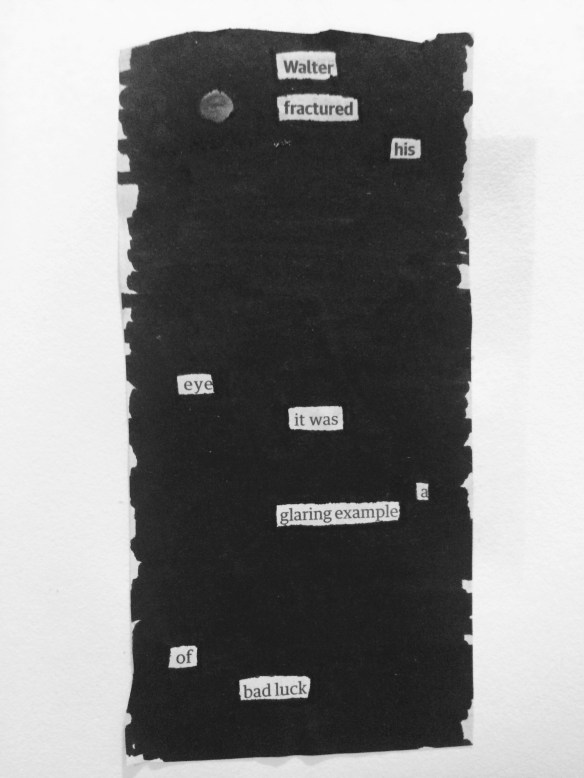 Walter
fractured
his
eye
it was
a
glaring example
of
bad luck